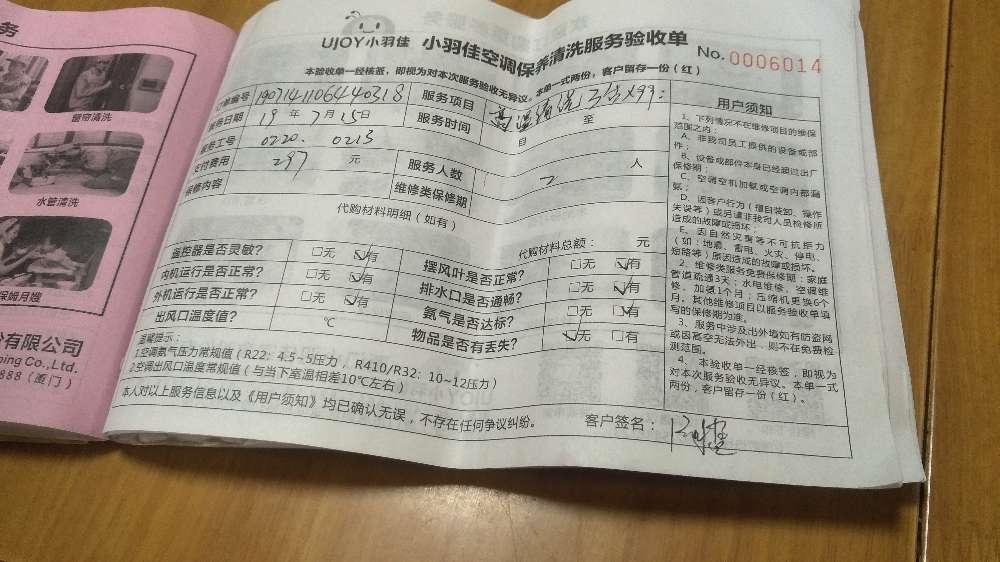 务
窗帘清洗
水管清洗
保姆月嫂
份有限公司
ping Co.,Ltd.
888（厦门）
UJOY小羽佳 小羽佳空调保养清洗服务验收单
No. 0006014
本验收单一经核签，即视为对本次服务验收无异议。本单一式两份，客户留存一份（红）
订单编号 190714110644 40318 服务项目 高温清洗3台×99：
服务日期 19年7月15日 服务时间 自 至
服务工号 0220. 0213
支付费用 297 元 服务人数 2 人
保修内容 维修类保修期
代购材料明细（如有）
代购材料总额： 元
遥控器是否灵敏？ □无 ☑有 摆风叶是否正常？ □无 ☑有
内机运行是否正常？ □无 ☑有 排水口是否通畅？ □无 ☑有
外机运行是否正常？ □无 ☑有 氨气是否达标？ □无 ☑有
出风口温度值？ ℃ 物品是否有丢失？ ☑无 □有
温馨提示：
1.空调氨气压力常规值（R22：4.5~5压力，R410/R32：10~12压力）
2.空调出风口温度常规值（与当下室温相差10℃左右）
本人对以上服务信息以及《用户须知》均已确认无误，不存在任何争议纠纷。
客户签名：
用户须知
1、下列情况不在维修项目的维保
范围之内：
A、非我司员工提供的设备或部
件；
B、设备或部件本身已经超过出厂
保修期；
C、空调空机加氨或空调内部漏
氨；
D、因客户行为（擅自装卸、操作
失误等）或另请非我司人员检修所
造成的故障或损坏；
E、因自然灾害等不可抗拒力
（如：地震、雷电、火灾、停电、
短路等）原因造成的故障或损坏。
2、维修类服务免费保修期：家庭
管道疏通3天；水电维修、空调维
修、加氨1个月；压缩机更换6个
月。其他维修项目以服务验收单填
写的保修期为准。
3、服务中涉及出外墙如有防盗网
或因高空无法外出，则不在免费检
测范围。
4、本验收单一经核签，即视为
对本次服务验收无异议。本单一式
两份，客户留存一份（红）。